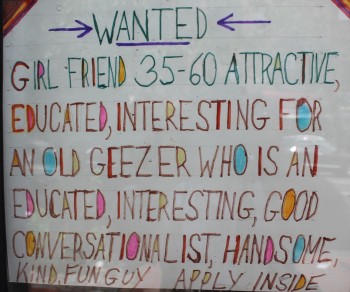 WANTED
GIRL FRIEND 35-60 ATTRACTIVE,
EDUCATED, INTERESTING FOR
AN OLD GEEZER WHO IS AN
EDUCATED, INTERESTING, GOOD
CONVERSATIONALIST, HANDSOME,
KIND, FUN GUY APPLY INSIDE